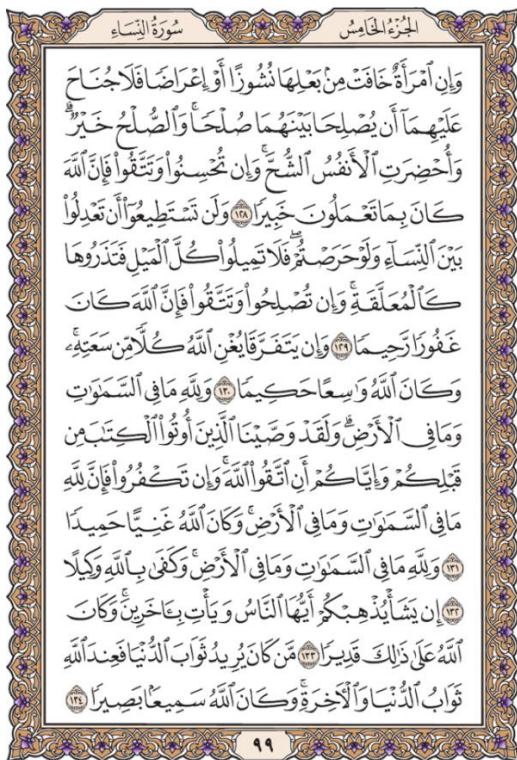 الجُزْءُ الخَامِسُ
سُورَةُ النِّسَاءِ
وَإِنِ ٱمْرَأَةٌ خَافَتْ مِنۢ بَعْلِهَا نُشُوزًا أَوْ إِعْرَاضًا فَلَا جُنَاحَ
عَلَيْهِمَآ أَن يُصْلِحَا بَيْنَهُمَا صُلْحًا ۚ وَٱلصُّلْحُ خَيْرٌ ۗ
وَأُحْضِرَتِ ٱلْأَنفُسُ ٱلشُّحَّ ۚ وَإِن تُحْسِنُوا۟ وَتَتَّقُوا۟ فَإِنَّ ٱللَّهَ
كَانَ بِمَا تَعْمَلُونَ خَبِيرًا ١٢٨ وَلَن تَسْتَطِيعُوٓا۟ أَن تَعْدِلُوا۟
بَيْنَ ٱلنِّسَآءِ وَلَوْ حَرَصْتُمْ ۖ فَلَا تَمِيلُوا۟ كُلَّ ٱلْمَيْلِ فَتَذَرُوهَا
كَٱلْمُعَلَّقَةِ ۚ وَإِن تُصْلِحُوا۟ وَتَتَّقُوا۟ فَإِنَّ ٱللَّهَ كَانَ
غَفُورًا رَّحِيمًا ١٢٩ وَإِن يَتَفَرَّقَا يُغْنِ ٱللَّهُ كُلًّا مِّن سَعَتِهِۦ ۚ
وَكَانَ ٱللَّهُ وَٰسِعًا حَكِيمًا ١٣٠ وَلِلَّهِ مَا فِى ٱلسَّمَٰوَٰتِ
وَمَا فِى ٱلْأَرْضِ ۗ وَلَقَدْ وَصَّيْنَا ٱلَّذِينَ أُوتُوا۟ ٱلْكِتَٰبَ مِن
قَبْلِكُمْ وَإِيَّاكُمْ أَنِ ٱتَّقُوا۟ ٱللَّهَ ۚ وَإِن تَكْفُرُوا۟ فَإِنَّ لِلَّهِ
مَا فِى ٱلسَّمَٰوَٰتِ وَمَا فِى ٱلْأَرْضِ ۚ وَكَانَ ٱللَّهُ غَنِيًّا حَمِيدًا
١٣١ وَلِلَّهِ مَا فِى ٱلسَّمَٰوَٰتِ وَمَا فِى ٱلْأَرْضِ ۚ وَكَفَىٰ بِٱللَّهِ وَكِيلًا
١٣٢ إِن يَشَأْ يُذْهِبْكُمْ أَيُّهَا ٱلنَّاسُ وَيَأْتِ بِـَٔاخَرِينَ ۚ وَكَانَ
ٱللَّهُ عَلَىٰ ذَٰلِكَ قَدِيرًا ١٣٣ مَّن كَانَ يُرِيدُ ثَوَابَ ٱلدُّنْيَا فَعِندَ ٱللَّهِ
ثَوَابُ ٱلدُّنْيَا وَٱلْءَاخِرَةِ ۚ وَكَانَ ٱللَّهُ سَمِيعًۢا بَصِيرًا ١٣٤
٩٩